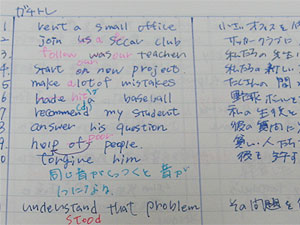 ガチトレ
1 rent a small office 小さいオフィスを
2 join us a soccar club サッカークラブに
3 follow was our teacher 私たちの先生
4 start our on new project. 私たちの新しい
5 make a lot of mistakes たくさんの間
6 baseball 野球
7 recommend my student 私の生徒
8 answer his question 彼の質問に
9 help of poor people. 貧しい人
10 forgive him 彼を
同じ音がくっつくと音が
1つになる
1 understand that problem その問題を
stood